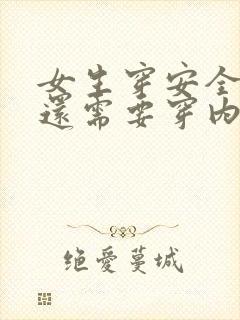 女生穿安全
還需要穿內
绝爱蔓城